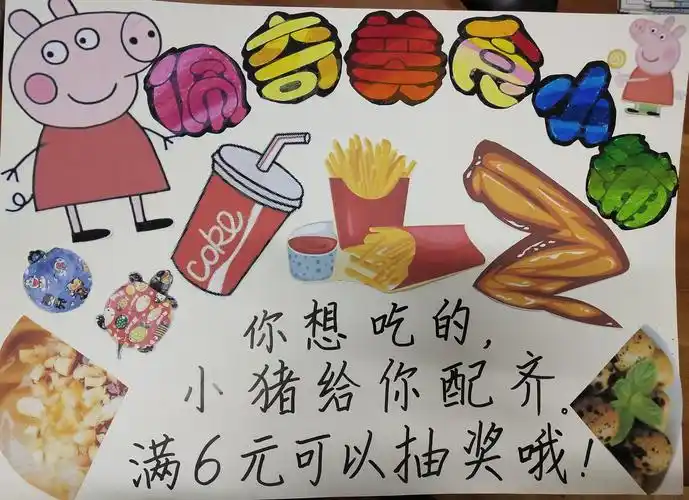 佩奇美食小
coke
你想吃的,
小猪给你配齐。
满6元可以抽奖哦!